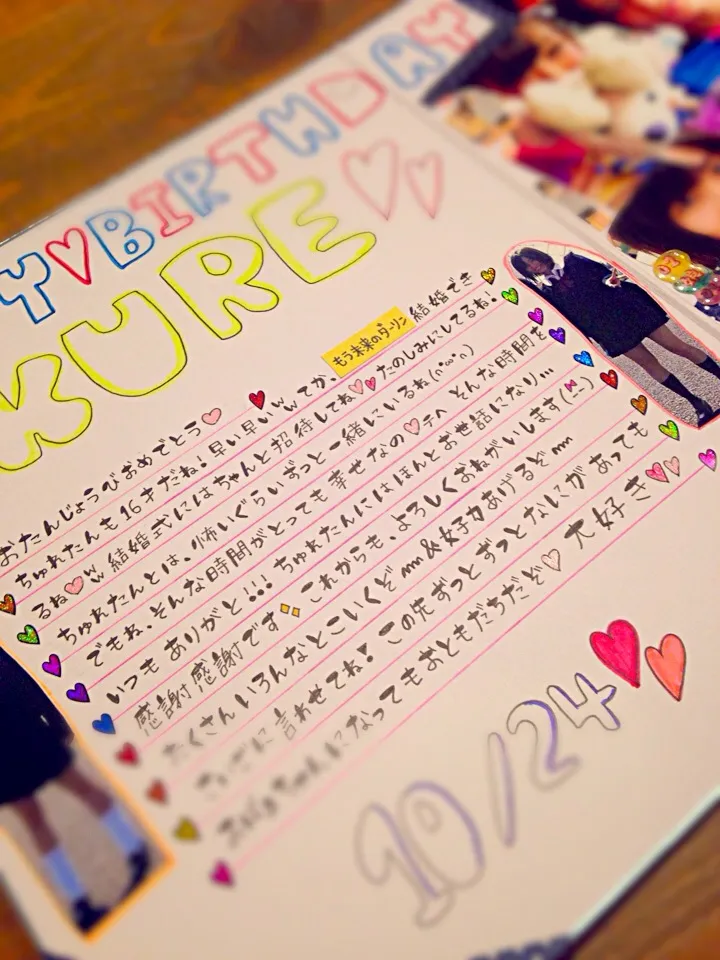 Y♥BIRTHDAY
KURE
もう未来のダーリン
おたんじょうびおめでとう♡
ちゅれたんも16才だね!早い早いwてか、結婚でき
るね♡w結婚式にはちゃんと招待してね♡♡たのしみにしてるね!
ちゅれたんとは、怖いぐらいずっと一緒にいるね(∩°ω°∩)
でもね、そんな時間がとっても幸せなの♡テヘ そんな時間を
いつもありがと!!!ちゅれたんにはほんとお世話になり…
感謝感謝です これからも、よろしくおねがいします(_ _)
たくさんいろんなとこいくぞmm&女子力あげるぞmm
に言わせてね!この先ずっとずっとなにがあっても
になってもおともだちだぞ♡大好き♡♡
10/24